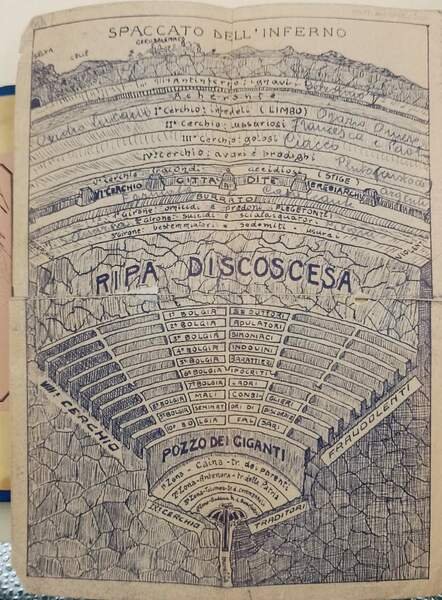 SPACCATO DELL'INFERNO
SELVA
COLLE
GERUSALEMME
Antinferno: ignavi
Acheronte
I° Cerchio: infedeli (LIMBO)
Ovidio Lucano
Orazio Omero
II° Cerchio: lussuriosi
Francesca e Paolo
III° Cerchio: golosi
Ciacco
IV° Cerchio: avari e prodighi
V° Cerchio iracondi accidiosi (STIGE)
VI CERCHIO CITTÀ DI DITE ERESIARCHI
BURRATO
1° Girone omicidi e predoni FLEGETONTE
2° Girone: suicidi e scialacquatori
3° Girone bestemmiatori e sodomiti usurai
RIPA DISCOSCESA
1ª BOLGIA SEDUTTORI
2ª BOLGIA ADULATORI
3ª BOLGIA SIMONIACI
4ª BOLGIA INDOVINI
5ª BOLGIA BARATTIERI
6ª BOLGIA IPOCRITI
7ª BOLGIA LADRI
BOLGIA MALI CONSIGLIERI
9ª BOLGIA SEMINATORI DI DISCORDIE
10ª BOLGIA FALSARI
VIII CERCHIO
FRAUDOLENTI
POZZO DEI GIGANTI
1ª Zona - Caina - tr. dei parenti
2ª Zona - Antenora - tr. della patria
IX CERCHIO
TRADITORI